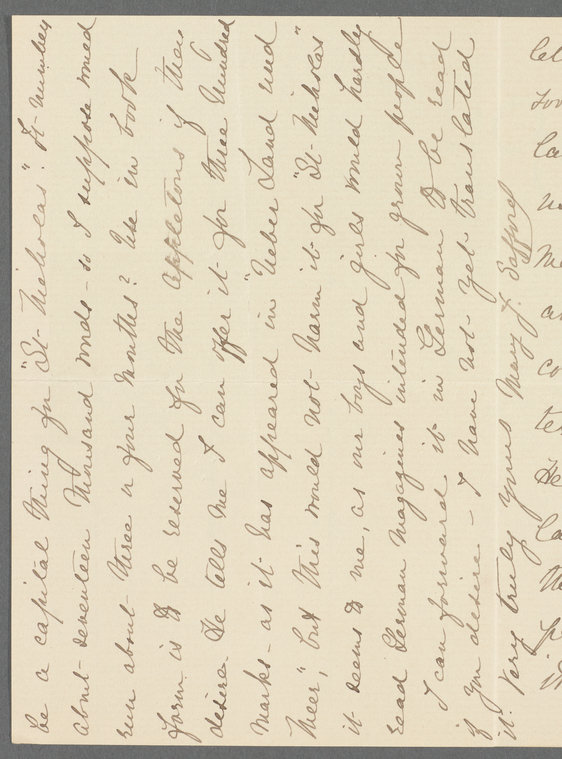 be a capital thing for "St. Nicholas." It numbers
about seventeen thousand words - so I suppose would
run about three or four months? Use in book
form is to be reserved for the Appletons if they
desire. He tells me I can offer it for three hundred
marks - as it has appeared in "Ueber Land und
Meer," but this would not harm it for "St. Nicholas"
it seems to me, as our boys and girls would hardly
read German magazines intended for grown people
I can forward it in German to be read
if you desire - I have not yet translated
it. Very truly yours Mary J. Safford